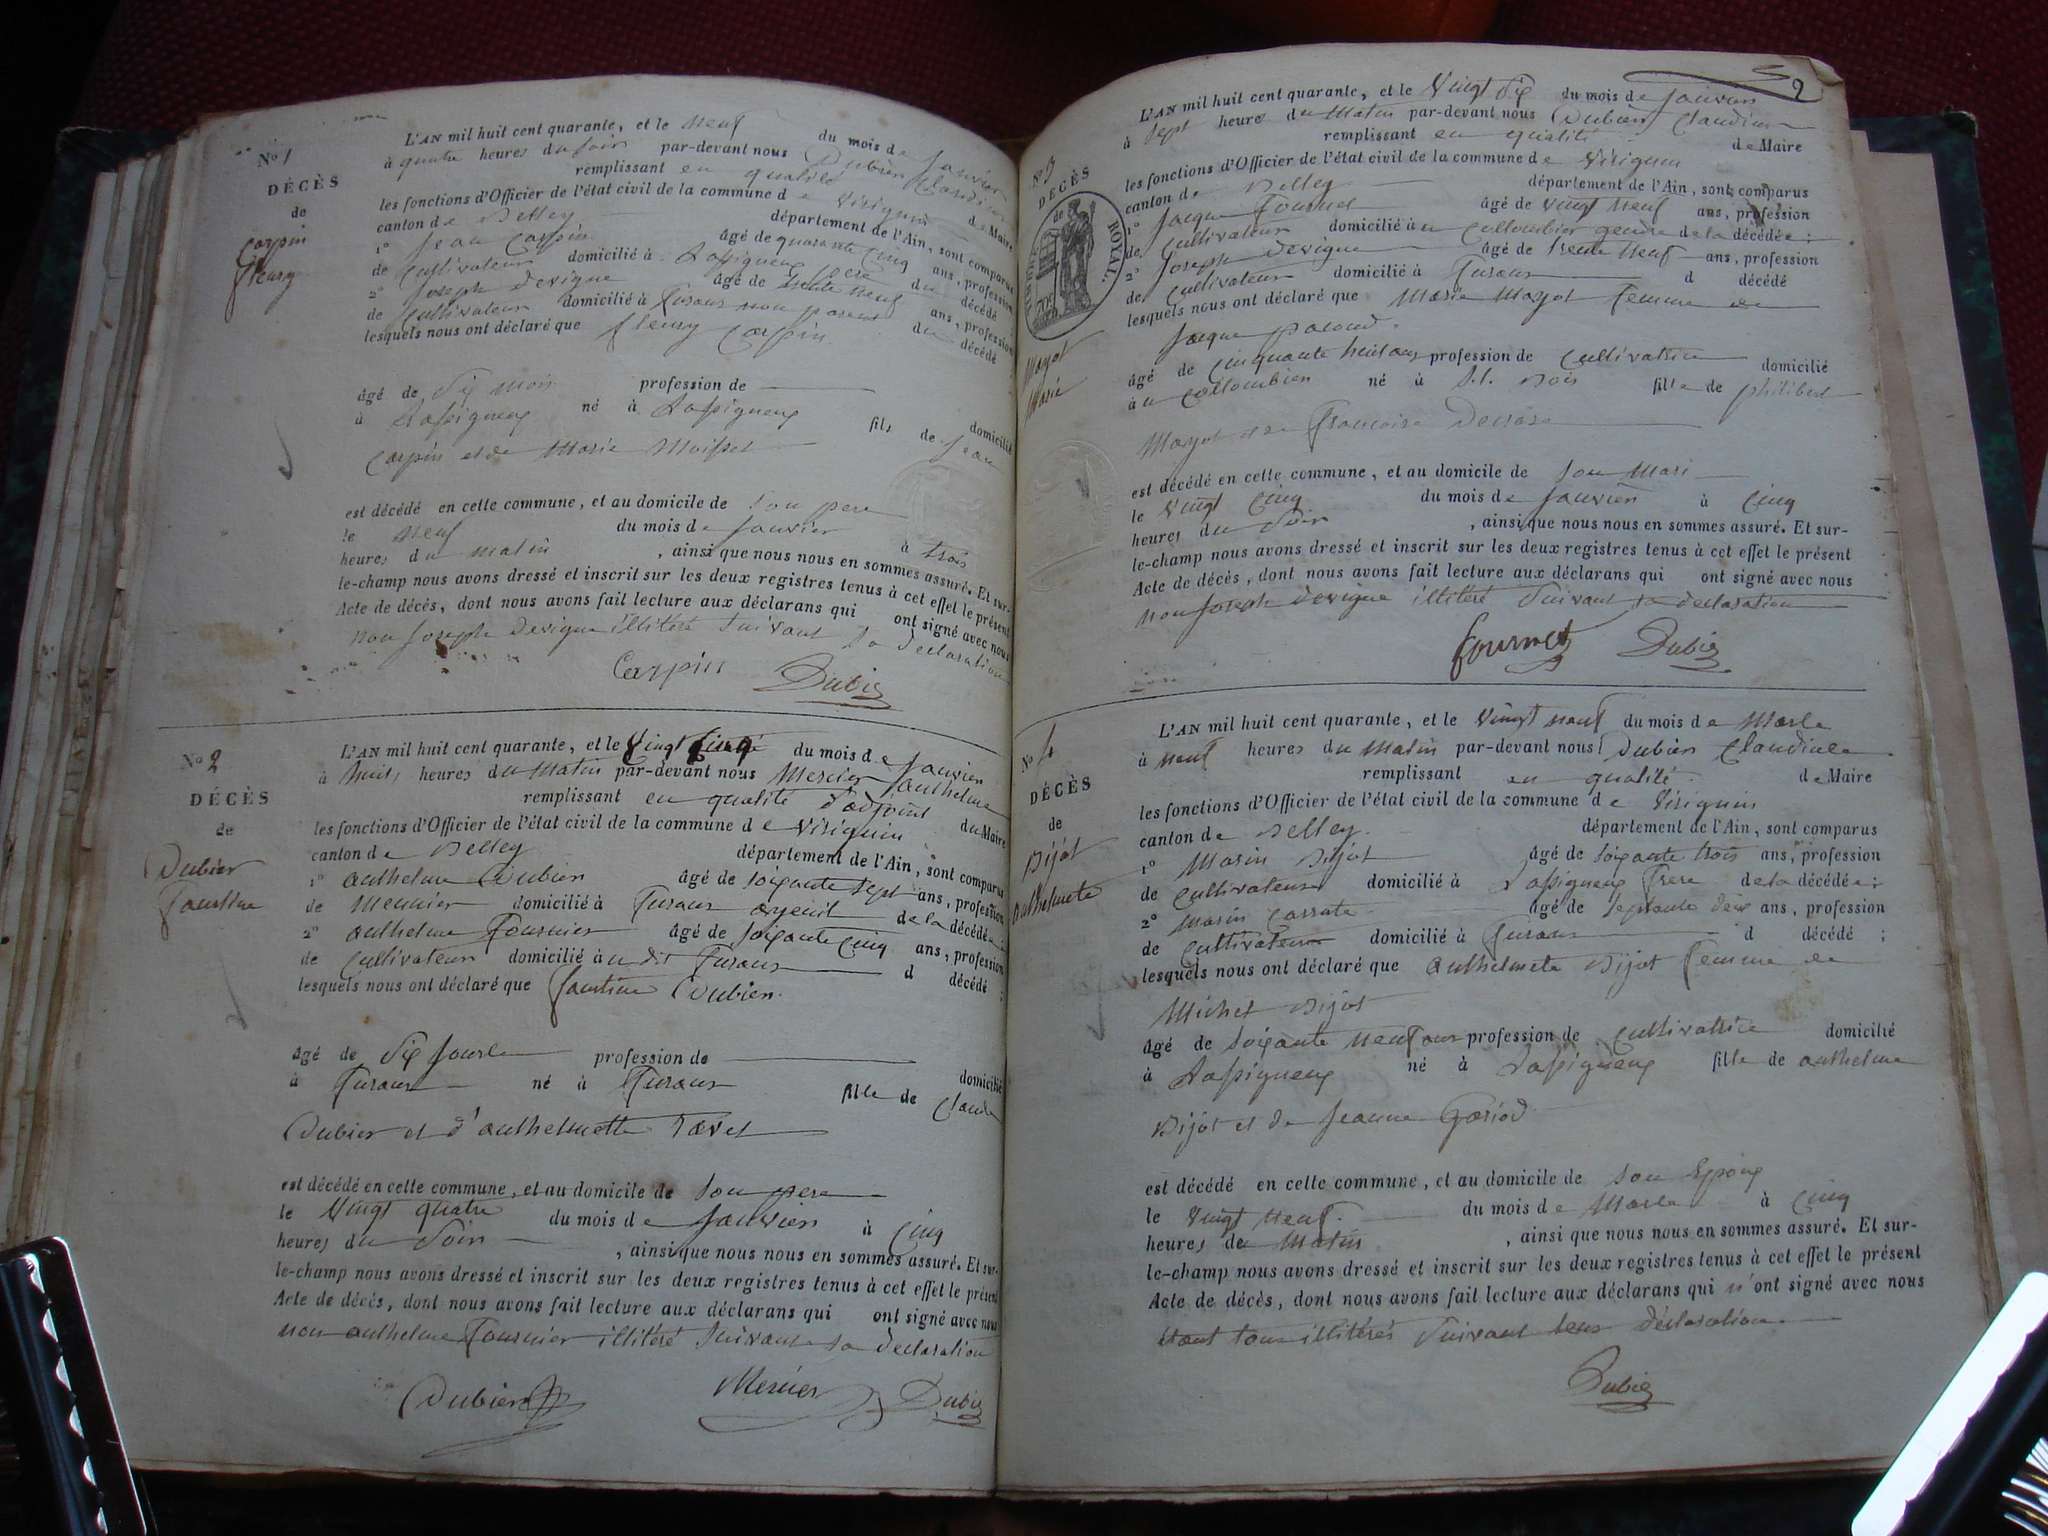 No 1
DÉCÈS
de
Carpin
fleury
L'AN mil huit cent quarante, et le neuf du mois de janvier
à quatre heures du soir par-devant nous Dubien Claudius
remplissant en qualité de Maire
les fonctions d'Officier de l'état civil de la commune de Virignin
canton de Belley département de l'Ain, sont comparus
1° Jean Carpin âgé de quarante cinq ans, profession
de cultivateur domicilié à Lassigneux père du décédé
2° Joseph devigne âgé de trente neuf ans, profession
de cultivateur domicilié à fusaus non parent du décédé
lesquels nous ont déclaré que fleury Carpin
âgé de Six mois profession de domicilié
à Lassigneux né à Lassigneux fils de Jean
Carpin et de Marie
est décédé en cette commune, et au domicile de Son pere
le neuf du mois de janvier à trois
heures du matin , ainsi que nous nous en sommes assuré. Et sur-
le-champ nous avons dressé et inscrit sur les deux registres tenus à cet effet le présent
Acte de décès, dont nous avons fait lecture aux déclarans qui ont signé avec nous
non Joseph devigne illitéré Suivant Sa déclaration
Carpin Dubien
No 2
DÉCÈS
de
Dubien
faustine
L'AN mil huit cent quarante, et le Vingt Cinq du mois de janvier
à huit heures du matin par-devant nous Mercier anthelme
remplissant en qualité d'adjoint du Maire
les fonctions d'Officier de l'état civil de la commune de Virignin
canton de Belley département de l'Ain, sont comparus
1° anthelme Dubien âgé de soixante sept ans, profession
de Meunier domicilié à fusaus ayeuil de la décédée
2° anthelme fournier âgé de soixante cinq ans, profession
de cultivateur domicilié à u dit fusaus d décédé ;
lesquels nous ont déclaré que faustine Dubien
âgé de Six jours profession de domicilié
à fusaus né à fusaus fille de Claude
Dubien et d'anthelmette ravet
est décédé en cette commune, et au domicile de Son pere
le Vingt quatre du mois de janvier à Cinq
heures du Soir , ainsi que nous nous en sommes assuré. Et sur-
le-champ nous avons dressé et inscrit sur les deux registres tenus à cet effet le présent
Acte de décès, dont nous avons fait lecture aux déclarans qui ont signé avec nous
non anthelme fournier illitéré Suivant sa déclaration
Dubien Mercier Dubien
2
No 3
DÉCÈS
de
TIMBRE ROYAL.
70c
Mayot
Marie
L'AN mil huit cent quarante, et le Vingt Six du mois de janvier
à sept heures du Matin par-devant nous Dubien Claudius
remplissant en qualité de Maire
les fonctions d'Officier de l'état civil de la commune de Virignin
canton de Belley département de l'Ain, sont comparus
1° Jacque fournet âgé de vingt neuf ans, profession
de cultivateur domicilié à u collombier gendre de la décédée ;
2° Joseph devigne âgé de trente neuf ans, profession
de cultivateur domicilié à fusaus d décédé
lesquels nous ont déclaré que Marie Mayot femme de
Jacque
âgé de cinquante huit ans profession de Cultivatrice domicilié
à u collombier né à St. Bois fille de philibert
Mayot et de francoise
est décédé en cette commune, et au domicile de Son Mari
le Vingt Cinq du mois de janvier à Cinq
heures du Soir , ainsi que nous nous en sommes assuré. Et sur-
le-champ nous avons dressé et inscrit sur les deux registres tenus à cet effet le présent
Acte de décès, dont nous avons fait lecture aux déclarans qui ont signé avec nous
non Joseph devigne illitéré Suivant sa déclaration
fournet Dubien
No 4
DÉCÈS
de
Bijot
anthelmete
L'AN mil huit cent quarante, et le Vingt neuf du mois de Mars
à neuf heures du Matin par-devant nous Dubien Claudius
remplissant en qualité de Maire
les fonctions d'Officier de l'état civil de la commune de Virignin
canton de Belley département de l'Ain, sont comparus
1° Marin Bijot âgé de soixante trois ans, profession
de cultivateur domicilié à Lassigneux frere de la décédée ;
2° Marin Carrate âgé de septante deux ans, profession
de cultivateur domicilié à fusaus d décédé ;
lesquels nous ont déclaré que anthelmete Bijot femme de
Michel Bijot
âgé de soixante neuf ans profession de cultivatrice domicilié
à Lassigneux né à Lassigneux fille de anthelme
Bijot et de Jeanne Goriod
est décédé en cette commune, et au domicile de son Epoux
le Vingt neuf du mois de Mars à Cinq
heures du Matin , ainsi que nous nous en sommes assuré. Et sur-
le-champ nous avons dressé et inscrit sur les deux registres tenus à cet effet le présent
Acte de décès, dont nous avons fait lecture aux déclarans qui n'ont signé avec nous
étant tous illitérés Suivant leur déclaration
Dubien